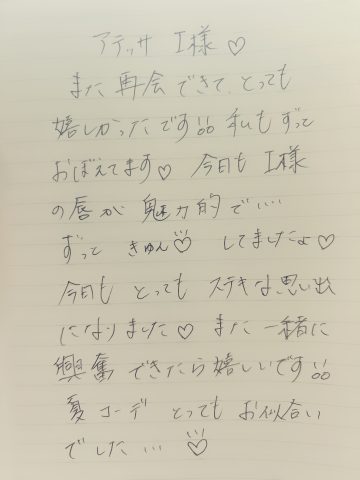 アテッサ I様♡
また 再会 できて、とっても
嬉しかったです!! 私も ずっと
おぼえてます♡ 今日も I様
の唇が 魅力的で‥‥
ずっと きゅん♡ してましたょ♡
今日も とっても ステキな思い出
になりました♡ また 一緒に
興奮 できたら嬉しいです!!
夏コーデ とっても お似合い
でした… ♡